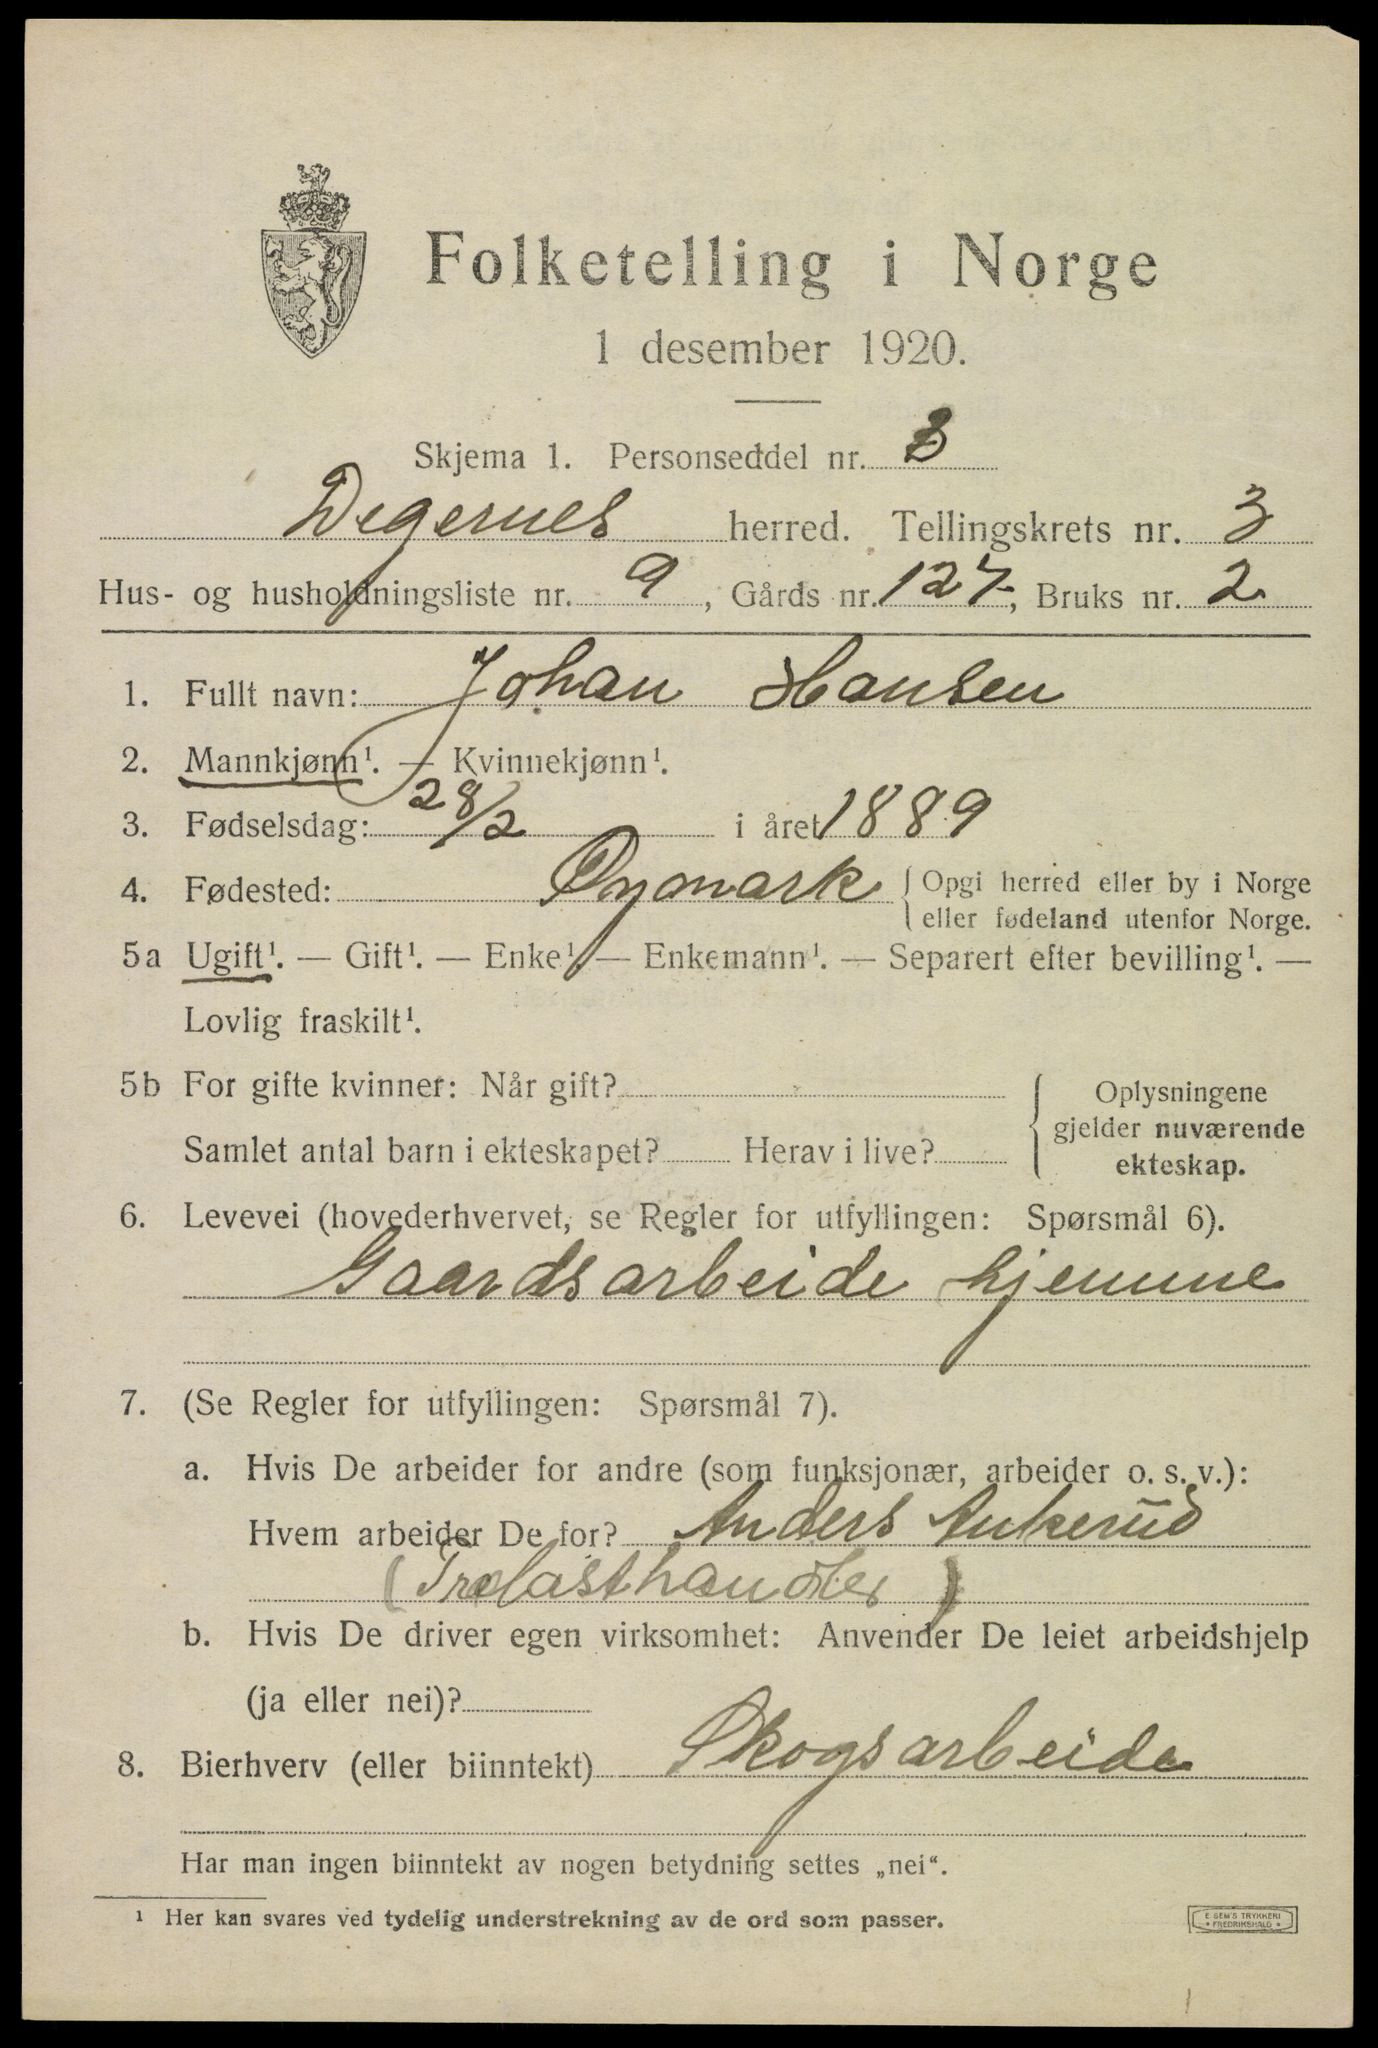 Folketelling i Norge
1 desember 1920.
Skjema 1. Personseddel nr. 3
Degernes herred. Tellingskrets nr. 3
Hus- og husholdningsliste nr. 9, Gårds nr. 127, Bruks nr. 2
1. Fullt navn: Johan Hansen
2. Mannkjønn¹. — Kvinnekjønn¹.
3. Fødselsdag: 28/2 i året 1889
4. Fødested: Øymark { Opgi herred eller by i Norge
eller fødeland utenfor Norge.
5a Ugift¹. — Gift¹. — Enke¹. — Enkemann¹. — Separert efter bevilling¹. —
Lovlig fraskilt¹.
5b For gifte kvinner: Når gift? { Oplysningene
gjelder nuværende
Samlet antal barn i ekteskapet? Herav i live? ekteskap.
6. Levevei (hovederhvervet, se Regler for utfyllingen: Spørsmål 6).
Gaardsarbeide hjemme
7. (Se Regler for utfyllingen: Spørsmål 7).
a. Hvis De arbeider for andre (som funksjonær, arbeider o. s. v.):
Hvem arbeider De for? Anders Ankerud
(Trælasthandler)
b. Hvis De driver egen virksomhet: Anvender De leiet arbeidshjelp
(ja eller nei)?
8. Bierhverv (eller biinntekt) Skogsarbeide
Har man ingen biinntekt av nogen betydning settes „nei“.
¹ Her kan svares ved tydelig understrekning av de ord som passer.
E. SEM'S TRYKKERI
FREDRIKSHALD